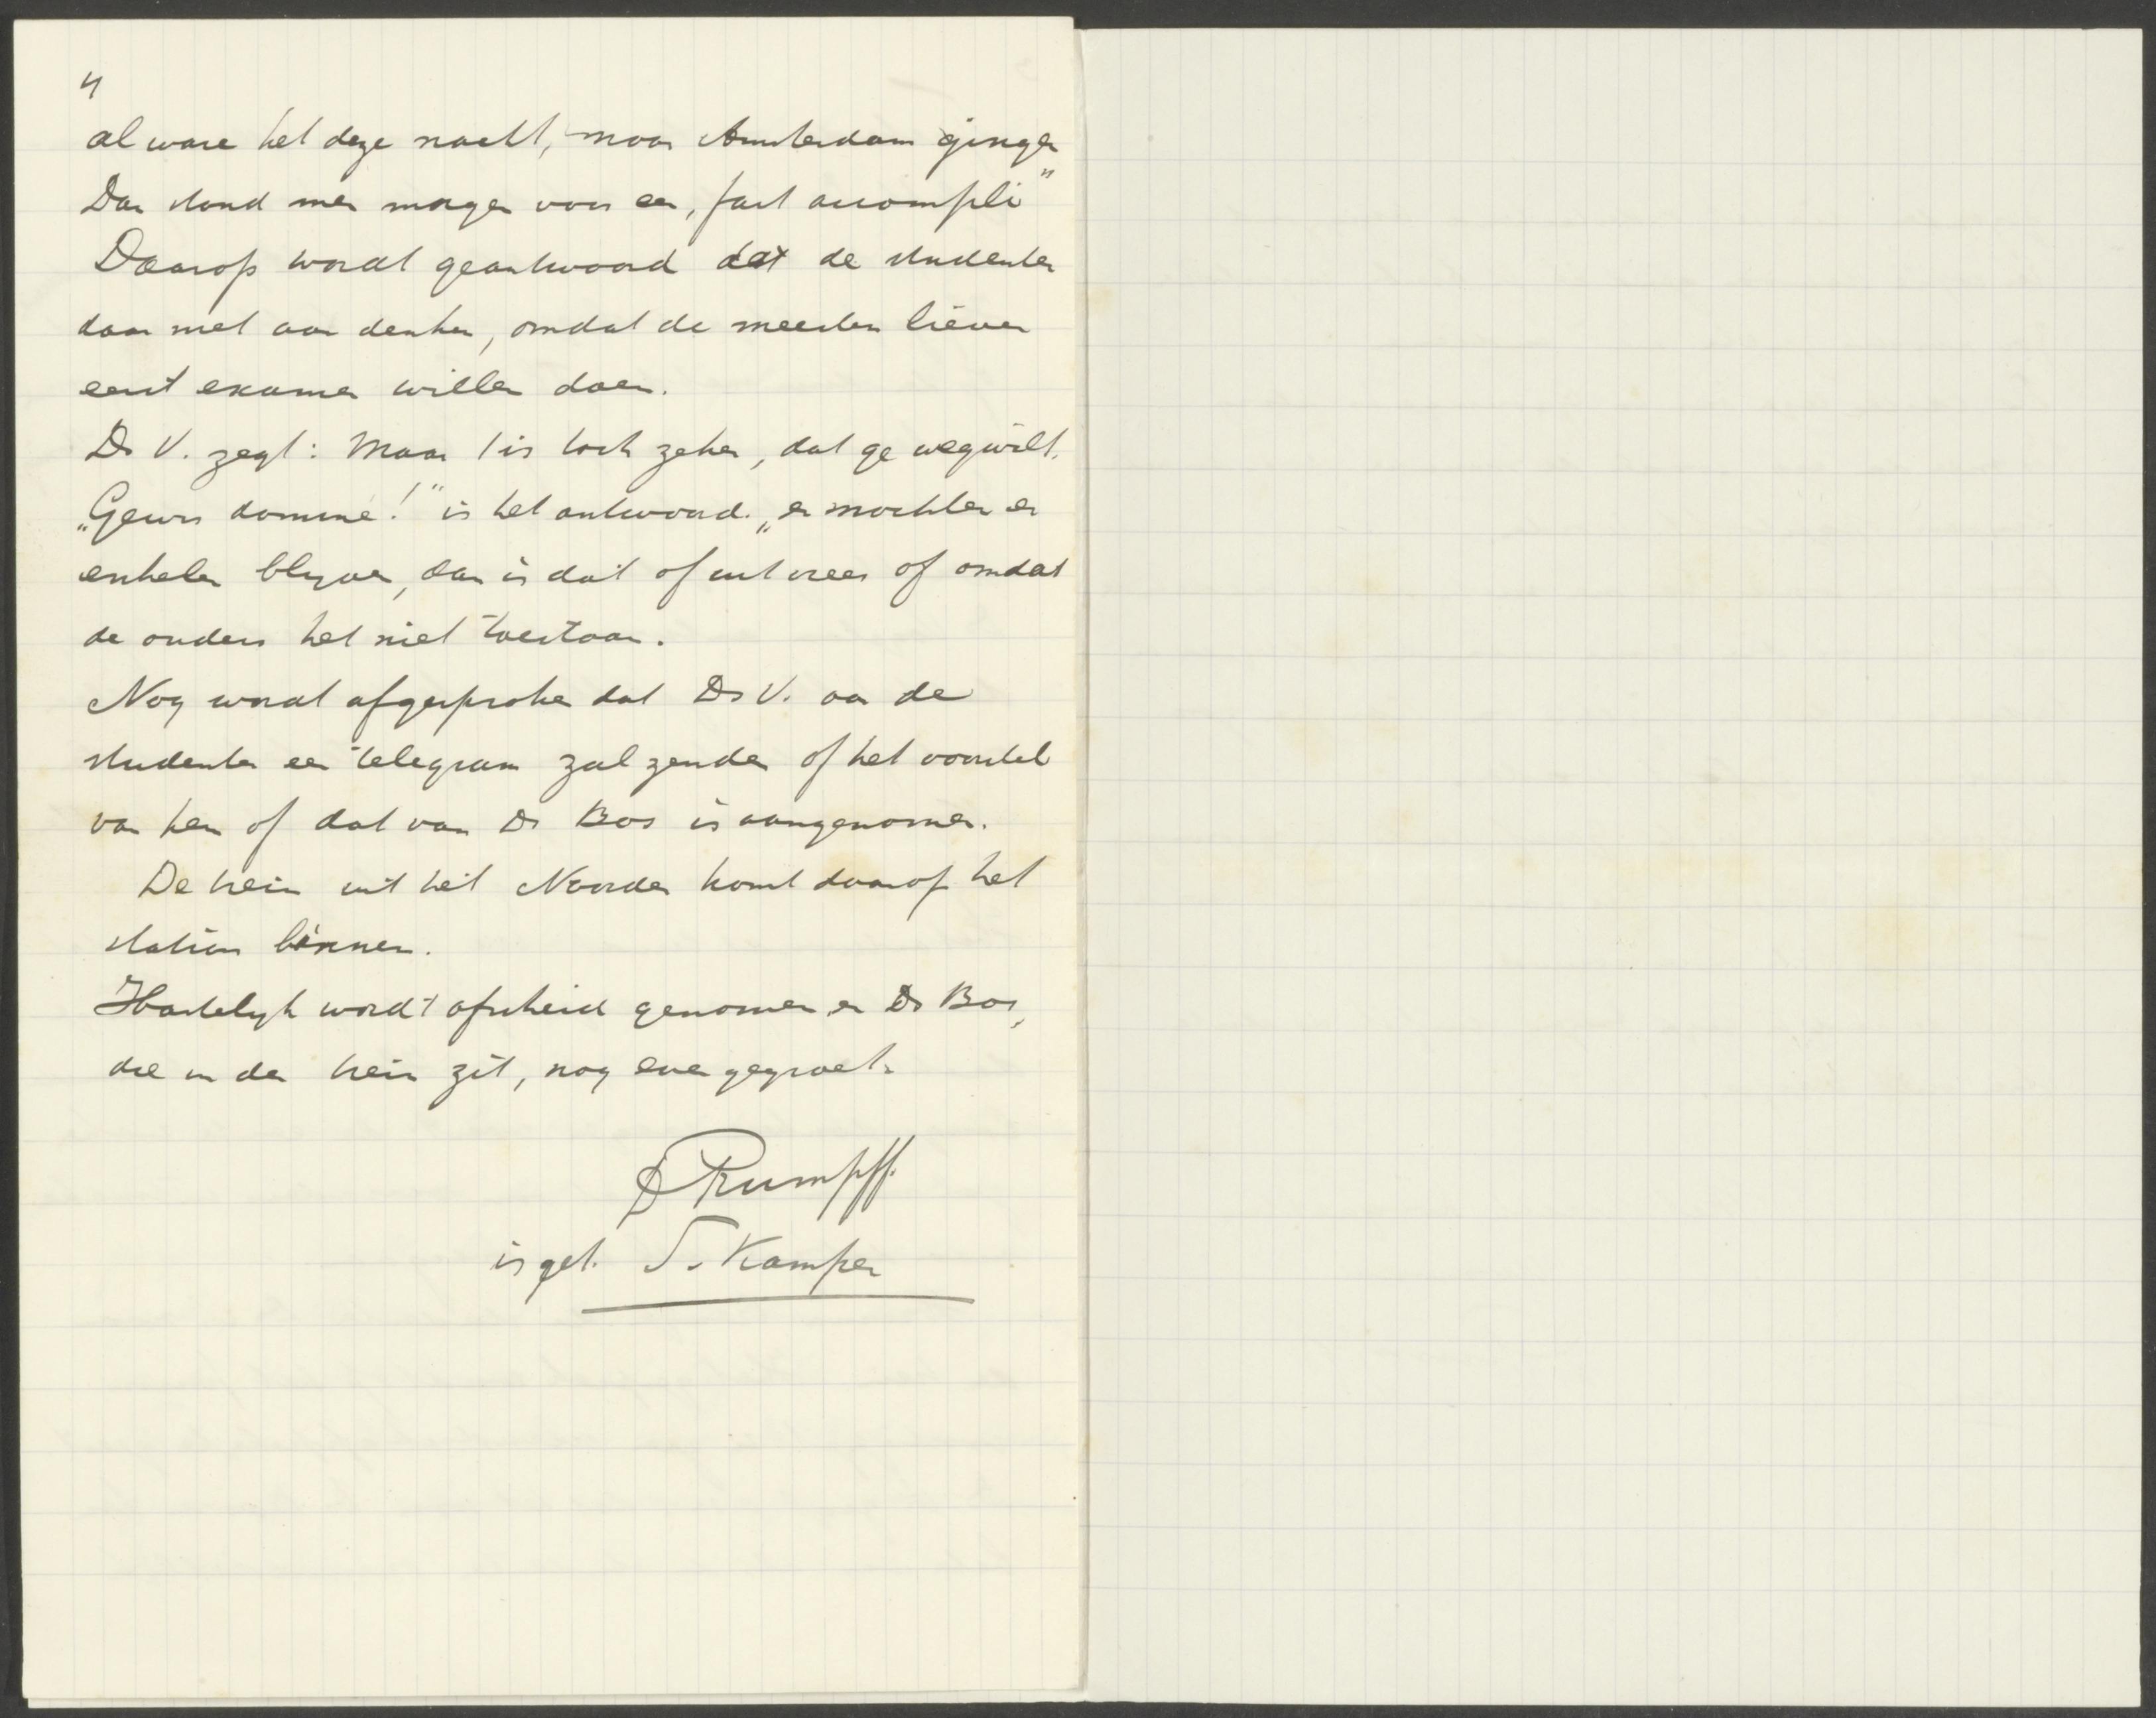 4
al ware het deze nacht, naar Amsterdam gingen
Dan stond men morgen voor een „fait accompli"
Daarop wordt geantwoord dat de studenten
daar niet aan denken, omdat de meesten liever
eerst examen willen doen.
Ds V. zegt: Maar 't is toch zeker, dat ge wegwilt.
„Gewis dominé!" is het antwoord. „en mochten er
enkelen blyven, dan is dat of uit vrees of omdat
de ouders het niet toestaan.
Nog wordt afgesproken dat Ds V. aan de
studenten een telegram zal zenden of het voorstel
van hen of dat van Ds Bos is aangenomen.
De trein uit het Noorden komt daarop het
station binnen.
Hartelyk wordt afscheid genomen en Ds Bos,
die in den trein zit, nog even gegroet.
Rumpff.
is get. S. Kamper